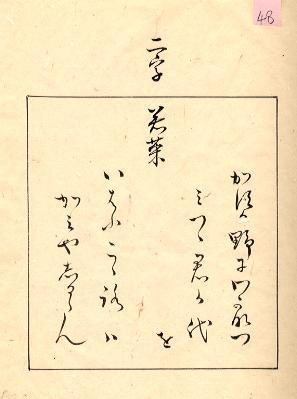 48
二字
若菜
かすか野にわかなつ
みつゝ君か代を
いはふこゝろハ
かみやしるらん